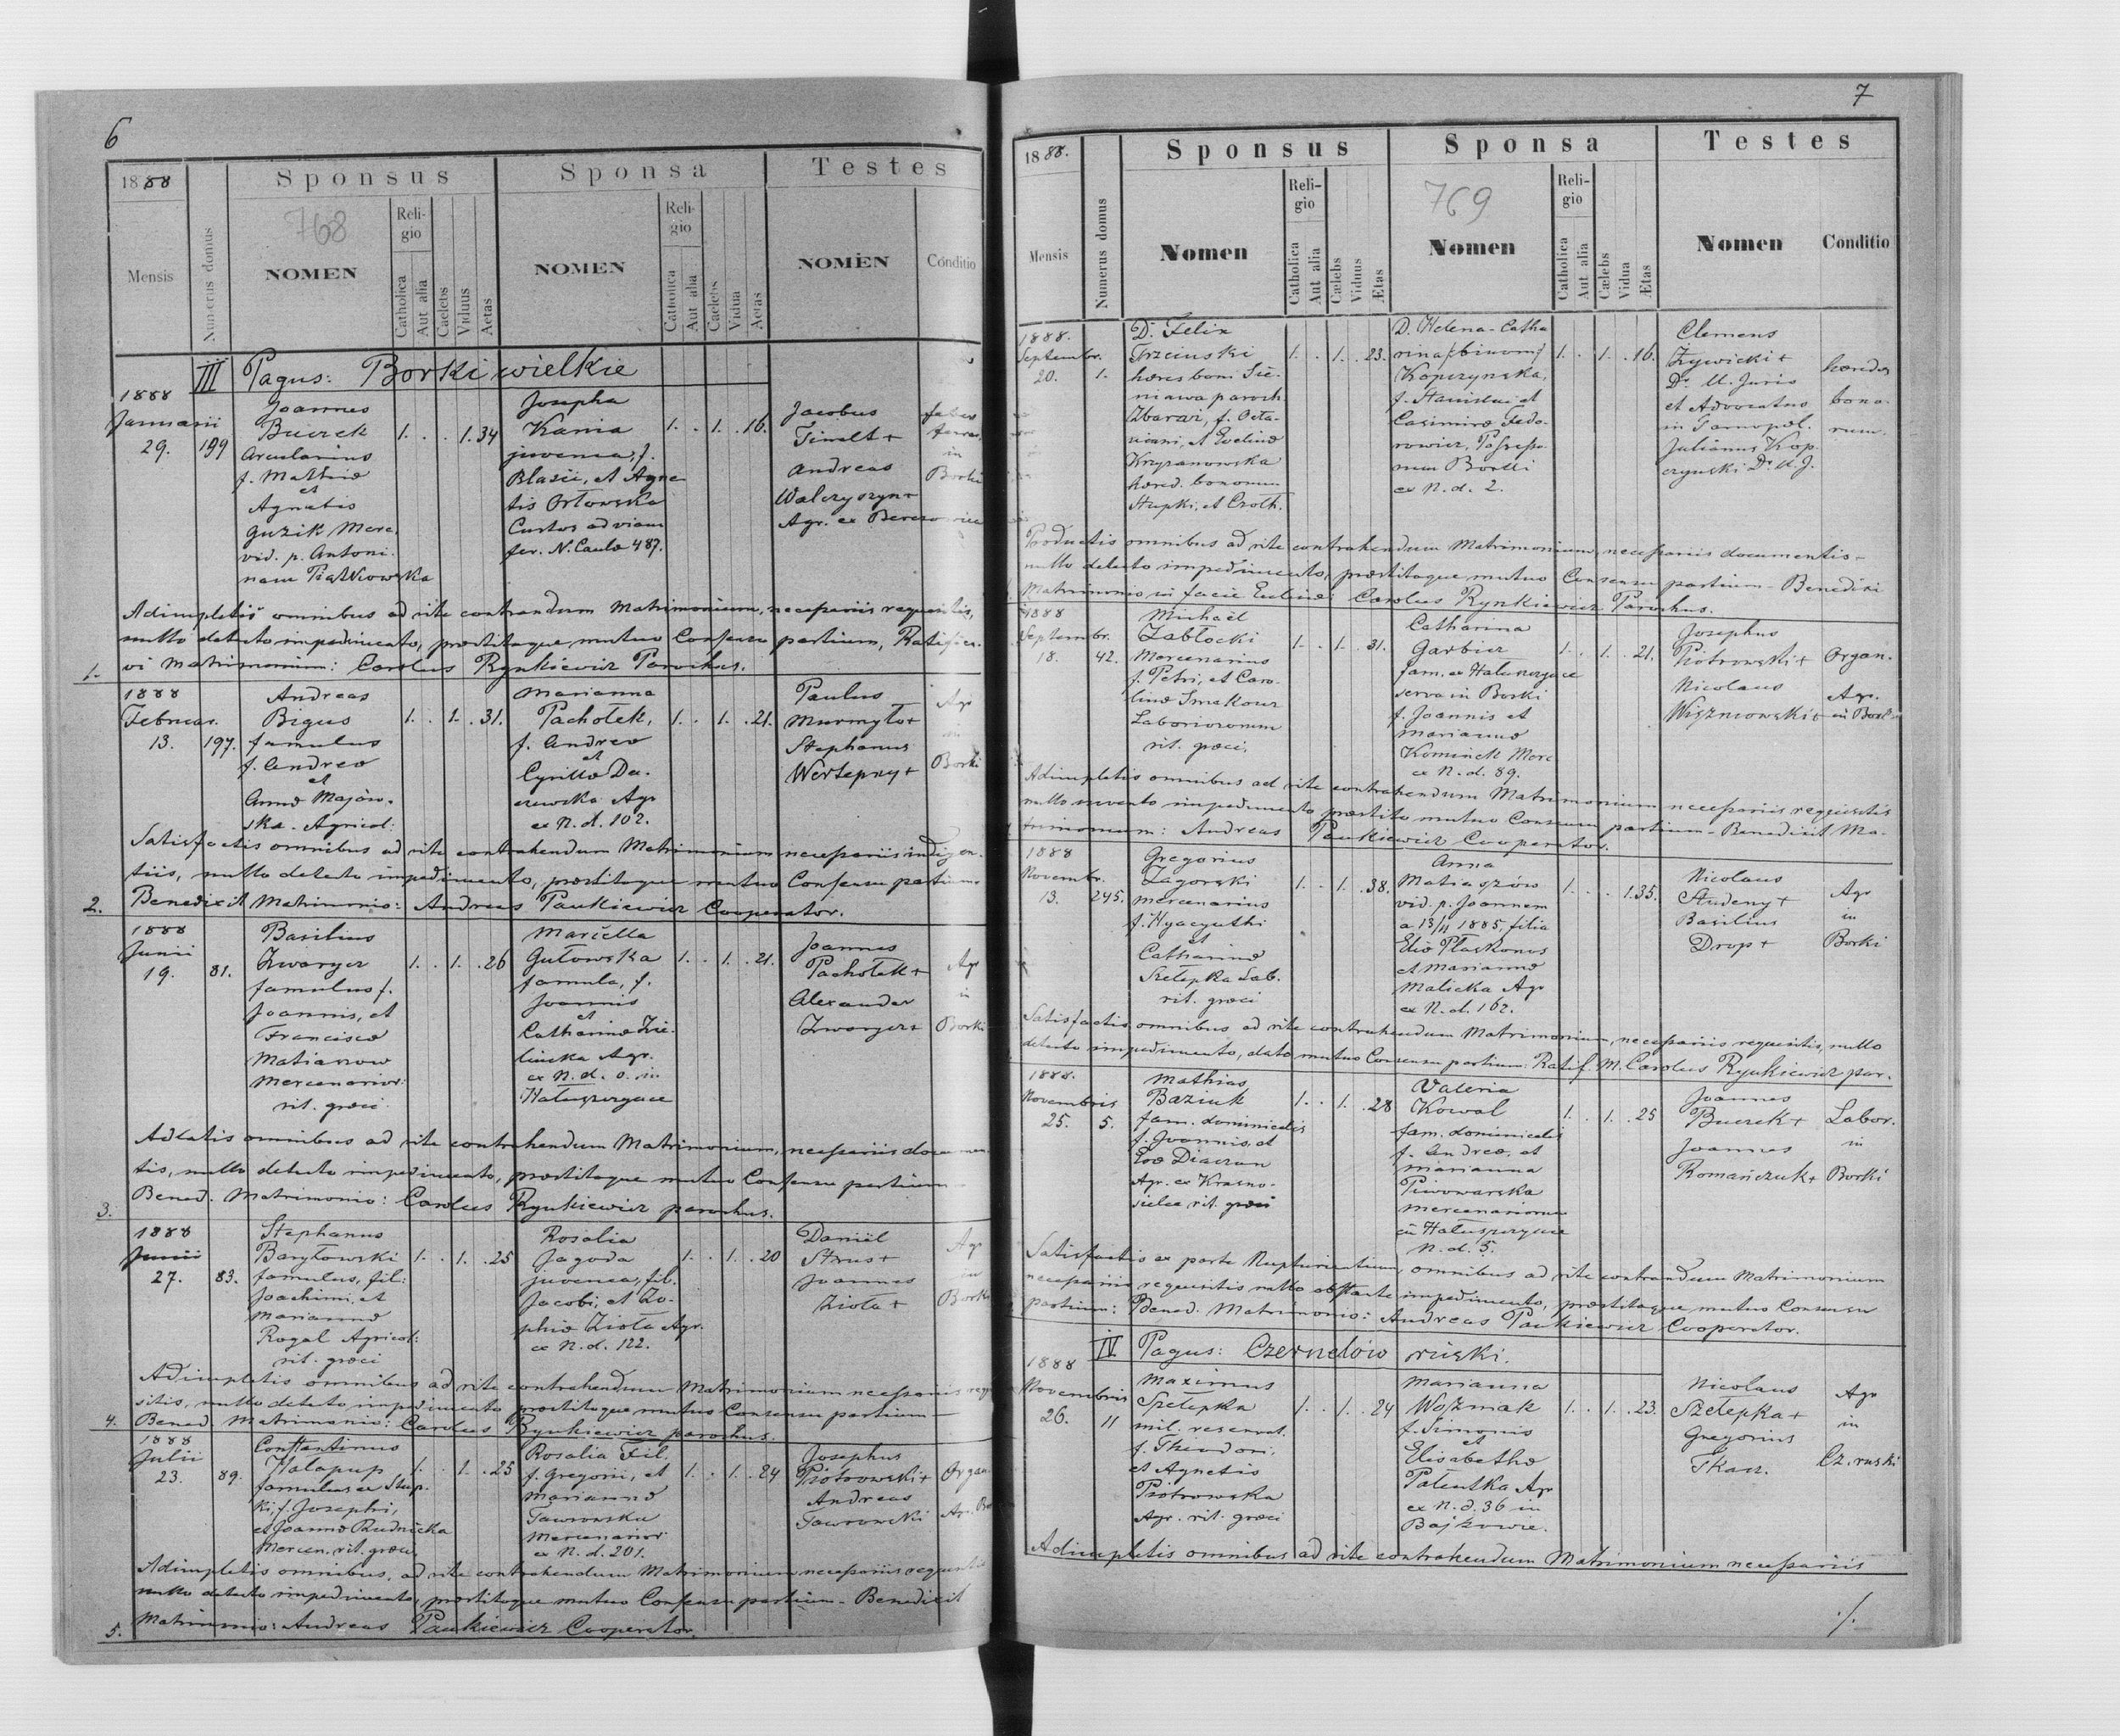 6
1888
Sponsus
Sponsa
Testes
768
Mensis
Numerus domus
NOMEN
Religio
Catholica
Aut alia
Caelebs
Viduus
Aetas
NOMEN
Religio
Catholica
Aut alia
Caelebs
Vidua
Aetas
NOMEN
Conditio
III Pagus: Borki wielkie
1888
Januarii
29.
199
Joannes
Buczek
Arcularius
f. Mathiæ
et
Agnetis
Guzik Merc.
vid. p. Antoni-
nam Piątkowska
1. . . 1. 34
Josepha
Kania
juvenca, f.
Blasii, et Agne
tis Orłowska
Custos ad viam
fer. N. Caulæ 487.
1. . 1. . 16.
Jacobus
Finalt +
Andreas
Walczyszyn +
Agr. ex Berezowica
in
Borki
Adimpletis omnibus ad rite contrandum Matrimonium, necessariis requisitis,
nullo detecto impedimento, præstitoque mutuo Consensu partium, Ratifica-
vi Matrimonium: Carolus Rynkiewicz Parochus.
1.
1888
Februar.
13.
197.
Andreas
Bigus
famulus
f. Andreæ
et
Annæ Majow-
ska. Agricol:
1. . 1. . 31.
Marianna
Pachołek,
f. Andreæ
et
Cyrillæ Da-
czewska Agr
ex N. d. 102.
1. . 1. . 21.
Paulus
Murmyło +
Stephanus
Wertepny +
Agr
in
Borki
Satisfactis omnibus ad rite contrahendum Matrimonium necessariis indigen-
tiis, nullo detecto impedimento, præstitoque mutuo Consensu partium
Benedixit Matrimonio: Andreas Paukiewicz Cooperator.
2.
1888
Junii
19.
81.
Basilius
Zwarycz
famulus f.
Joannis, et
Franciscæ
Matiasow
Mercenarior:
rit. græci
1. . 1. . 26
Mariella
Gutowska
famula, f.
Joannis
et
Catharinæ Zie-
lińska Agr.
ex N. d. 0. in
Hałuszczyńce
1. . 1. . 21.
Joannes
Pachołek +
Alexander
Zwarycz +
Agr
in
Borki
Allatis omnibus ad rite contrahendum Matrimonium, necessariis documen-
tis, nullo detecto impedimento, præstitoque mutuo Consensu partium
Bened. Matrimonio: Carolus Rynkiewicz parochus.
3.
1888
Junii
27.
83.
Stephanus
Baryłowski
famulus, fil:
Joachimi, et
Mariannæ
Rogal Agricol:
rit. græci
1. . 1. . 25
Rosalia
Jagoda
juvenca, fil.
Jacobi, et Zo-
phiæ Zioła Agr.
ex N. d. 122.
1. . 1. . 20
Daniil
Strus +
Joannes
Zioła +
Agr
in
Borki
Adimpletis omnibus ad rite contrahendum Matrimonium necessariis requi
sitis, nullo detecto impedimento præstitoque mutuo Consensu partium
Bened. Matrimonio: Carolus Rynkiewicz parochus.
4.
1888
Julii
23.
89.
Constantinus
Halapup
famulus ex Stup-
ki, f. Josephi,
et Joannæ Rudnicka
Mercen. rit. græci,
1. . 1. . 25
Rosalia Fil.
f. Gregorii, et
Mariannæ
Jawronska
Mercenarior:
ex N. d. 201.
1. . 1. . 24
Josephus
Piotrowski +
Andreas
Jawronski
Organ.
Agr. Bor
Adimpletis omnibus, ad rite contrahendum Matrimonium necessariis requisitis
nullo detecto impedimento, præstitoque mutuo Consensu partium - Benedixit
Matrimonio: Andreas Paukiewicz Cooperator.
5.
7
1888.
Sponsus
Sponsa
Testes
769
Mensis
Numerus domus
Nomen
Religio
Catholica
Aut alia
Cælebs
Viduus
Ætas
Nomen
Religio
Catholica
Aut alia
Cælebs
Vidua
Ætas
Nomen
Conditio
1888.
Septembr.
20.
1.
D. Felix
Trzciński
hæres boni Sie-
niawa paroch
Zbaraż, f. Octa-
viani, et Evelinæ
Krzyzanowska
hæred. bonorum
Stupki, et Czoth.
1. . 1. . 23.
D. Helena-Catha
rina (binom)
Kopczynska,
f. Stanislai et
Casimiræ Fedo-
rowicz, Possesso-
rum Borki
ex N. d. 2.
1. . 1. . 16.
Clemens
Żywicki +
Dr. U. Juris
et Advocatus
in Tarnopol.
Julianus Kop-
czynski Dr. U. J.
hæredes
bono-
rum.
Productis omnibus ad rite contrahendum Matrimonium, necessariis documentis -
nullo detecto impedimento, præstitoque mutuo Consensu partium - Benedixi
Matrimonio in facie Ecclesiæ: Carolus Rynkiewicz Parochus.
1888
Septembr.
18.
42.
Michaël
Zabłocki
Mercenarius
f. Petri, et Caro-
linæ Smakouz
Laboriorum
rit. græci,
1. . 1. . 31.
Catharina
Garbicz
fam. ex Hałuszczyńce
serva in Borki
f. Joannis et
Mariannæ
Kominek Merc
ex N. d. 89.
1. . 1. . 21.
Josephus
Piotrowski +
Nicolaus
Wiszniowski +
Organ.
Agr.
in Borki
Adimpletis omnibus ad rite contrahendum Matrimonium necessariis requisitis
nullo invento impedimento præstito mutuo Consensu partium - Benedixit Ma-
trimonium: Andreas Paukiewicz Cooperator.
1888
Novembr.
13.
245.
Gregorius
Zagorski
mercenarius
f. Hyacynthi
et
Catharinæ
Szelepka Lab.
rit. græci
1. . 1. . 38.
Anna
Matiaszów
vid. p. Joannem
a 13/11 1885, filia
Eliæ Płaskonos
et Mariannæ
Malicka Agr
ex N. d. 162.
1. . . 1. 35.
Nicolaus
Studeny +
Basilius
Drop +
Agr
in
Borki
Satisfactis omnibus ad rite contrahendum Matrimonium, necessariis requisitis, nullo
detecto impedimento, dato mutuo Consensu partium: Ratif. M. Carolus Rynkiewicz par.
1888.
Novembris
25.
5.
Mathias
Baziuk
fam. dominicalis
f. Joannis, et
Evæ Diaczun
Agr. ex Krasno-
sielce rit. græci
1. . 1. . 28
Valeria
Kowal
fam. dominicalis
f. Andreæ, et
Marianna
Piwowarska
mercenariorum
in Hałuszczyńce
N. d. 5.
1. . 1. . 25
Joannes
Buczek +
Joannes
Romańczuk +
Labor.
in
Borki
Satisfactis ex parte Nupturientium, omnibus ad rite contrandum Matrimonium
necessariis requisitis nullo obstante impedimento, præstitoque mutuo Consensu
partium: Bened. Matrimonio: Andreas Paukiewicz Cooperator.
IV Pagus: Czernelów ruski.
1888
Novembris
26.
11
Maximus
Szelepka
mil. reservat.
f. Theodori,
et Agnetis
Piotrowska
Agr. rit. græci
1. . 1. . 24
Marianna
Woźniak
f. Simonis
et
Elisabethæ
Paleutka Agr
ex N. d. 36 in
Bajkowce.
1. . 1. . 23.
Nicolaus
Szelepka +
Gregorius
Tkacz.
Agr
in
Cz. ruski
Adimpletis omnibus ad rite contrahendum Matrimonium necessariis
./.